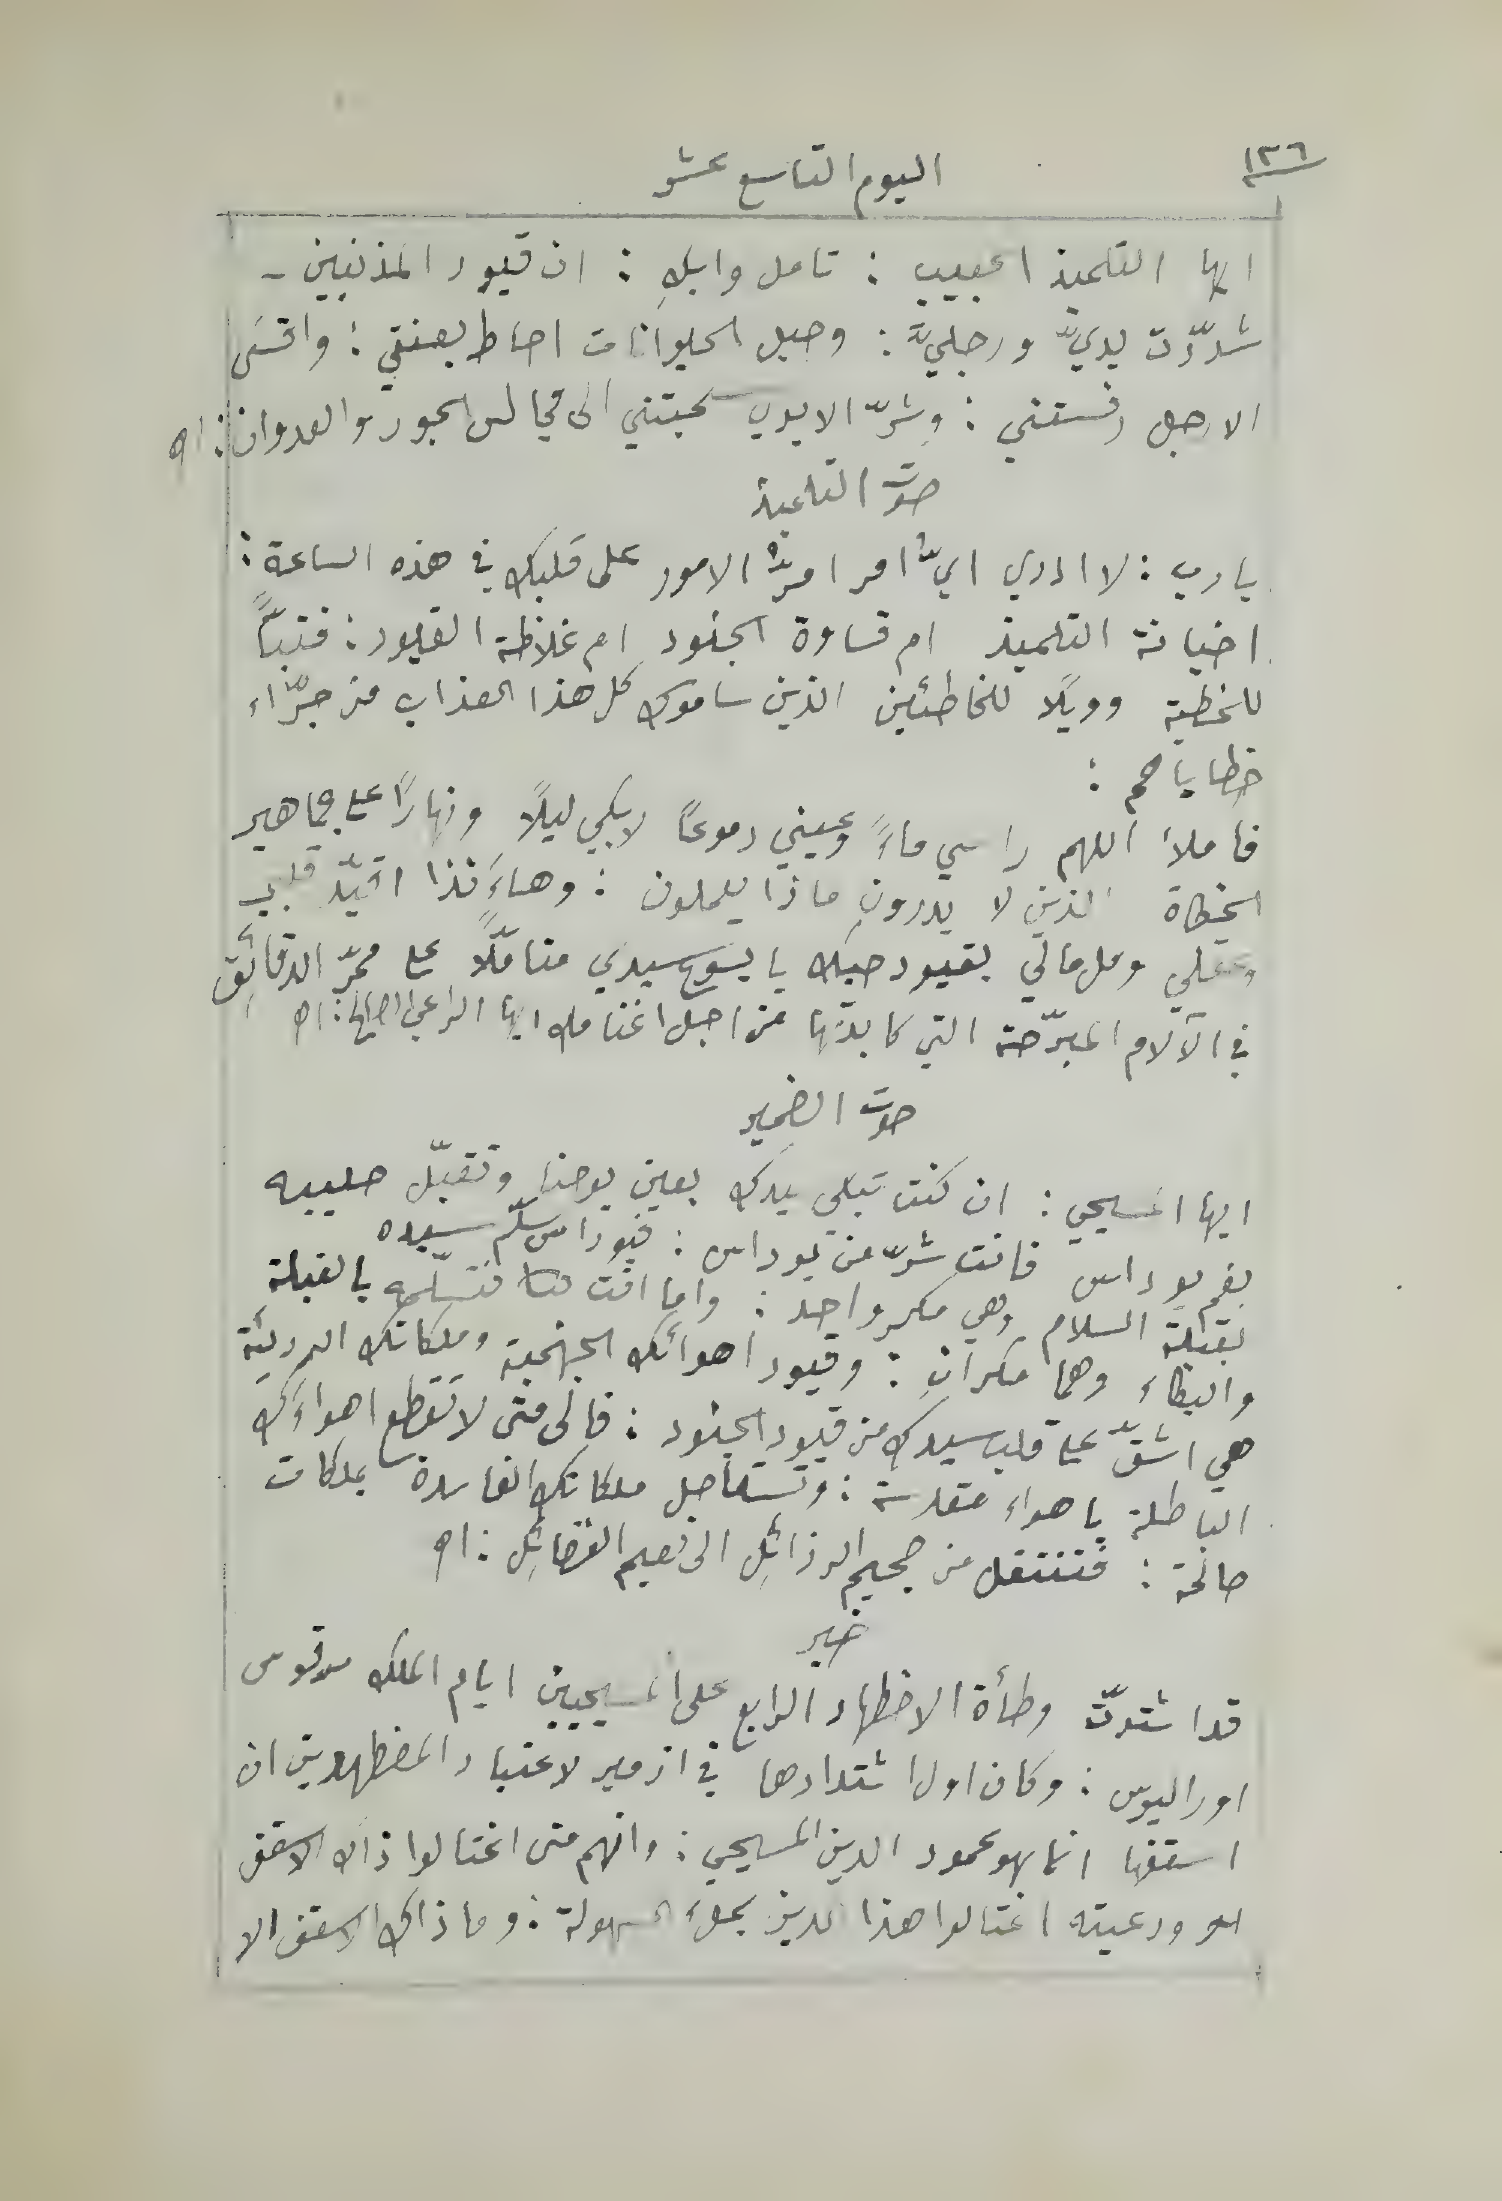 ١٣٦
اليوم التاسع عشر
ايها التلميذ الحبيب : تامل وابكِ : ان قيود المذنبين -
شدّدت يديّ ورجليّ : وحبل الحيوانات احاط بعنقي : واقسَى
الارجل رفستني : وشرّ الايدي سحبتني الى مجالس الجور والعدوان : اه
صوت التلميذ
يا رب : لا ادري ايّ امر امرّ الامور على قلبك في هذه الساعة :
اخيانة التلميذ ام قساوة الجنود ام غلاظة القيود : فتبّاً
للخطية وويلًا للخاطئين الذين ساموك كل هذا العذاب من جرّاء
خطاياهم :
فاملأ اللهم راسي ماءً وعيني دموعاً لابكي ليلًا ونهارًا على جماهير
الخطاة الذين لا يدرون ماذا يعملون : وهاءَنذا اقيّد قلبي
وعقلي ومل مالي بقيود حبك يا يسوع سيدي متاملًا على ممرّ الدقائق
في الآلام المبرّحة التي كابدتها من اجل اغنامك ايها الراعي الصالح : اه
صوت الضمير
ايها المسيحي : ان كنت تبكي سيدك بعين يوحنا وتقبّل صليبه
بفم يوداس فانت شرّ من يوداس : فيوداس سلّم سيده
بقبلة السلام وهي مكر واحد : واما انت فتسلّمه بالقبلة
والبكاء وهما مكرانِ : وقيود اهوائك الجهنمية وملكاتك الرديئة
هي اشقّ على قلب سيدك من قيود الجنود : فالى متى لا تقطع اهواءَك
الباطلة باهواء مقدسة : وتستاصل ملكاتك الفاسدة بملكات
صالحة : فتنتقل من جحيم الرذائلِ الى نعيم الفضائلِ : اه
خبر
قد اشتدّت وطأة الاضطهاد الرابع على المسيحيين ايام الملك مرقوس
اوراليوس : وكان اول اشتدادها في ازمير لاعتبار المضطهدين ان
اسقفها انما هو عمود الدين المسيحي : وانهم متى اغتالوا ذاك الاسقف
هو ورعيته اغتالوا هذا الدين بكل سهولة : وما ذاك الاسقف الا